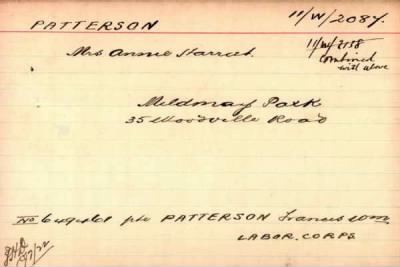 PATTERSON 11/W/2087.
Mrs Annie Harriet.
11/W/2158
Combined
with above
Mildmay Park
35 Woodville Road
No 649461 pte PATTERSON Francis Wm
LABOR. CORPS